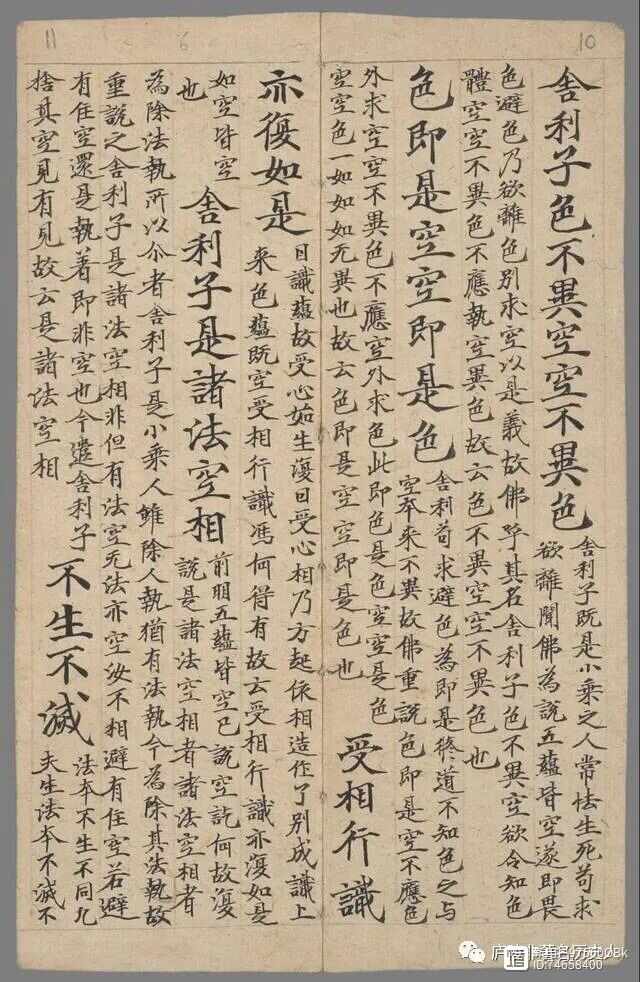 11
6
10
舍利子色不異空空不異色
舍利子既是小乘之人常怯生死苟求
欲離聞佛為說五蘊皆空遂即畏
色避色乃欲離色別求空以是義故佛呼其名舍利子色不異空欲令知色
體空空不異色不應執空異色故云色不異空空不異色也
色即是空空即是色
舍利苟求避色為即是修道不知色之与
空本来不異故佛重說色即是空不應色
外求空空不異色不應空外求色此即色是色空空是色
空空色一如如如无異也故云色即是空空即是色也
受相行識
亦復如是
曰識蘊故受心如生復曰受心相乃方起依相造作了別成識上
来色蘊既空受相行識馮何得有故云受相行識亦復如是
如空皆空
也
舍利子是諸法空相
前明五蘊皆空已說空訖何故復
說是諸法空相者諸法空相者
為除法執所以尒者舍利子是小乘人雖除人執猶有法執今為除其法執故
重說之舍利子是諸法空相非但有法空无法亦空汝不相避有住空若避
有住空還是執著即非空也今遣舍利子
捨真空見有見故云是諸法空相
不生不滅
法本不生不同凡
夫生法本不滅不
ID:74658400